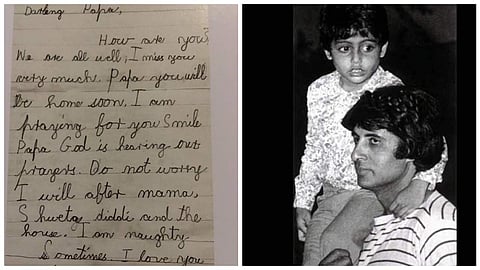 Darling Papa,
How are you?
We are all well, I miss you
very much. Papa you will
be home soon. I am
praying for you Smile
Papa God is hearing our
prayers. Do not worry
I will after mama,
Shweta diddi and the
house. I am naughty
Sometimes. I love you